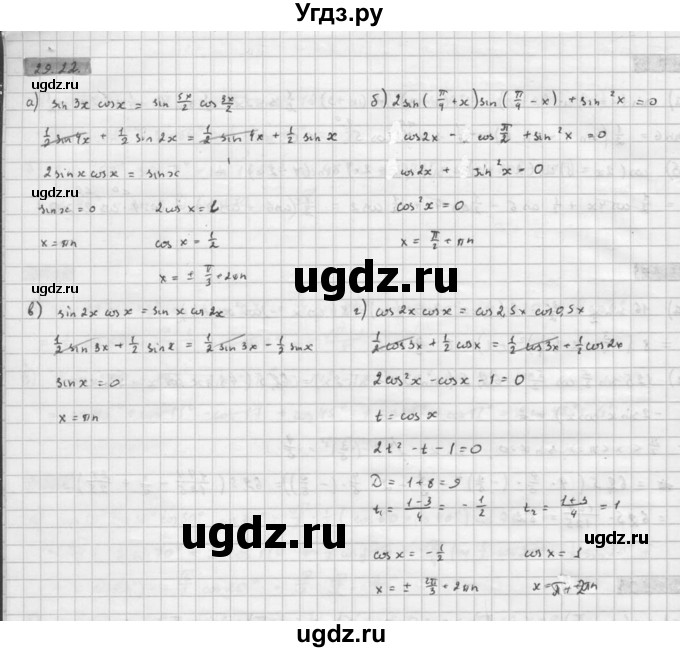 Угдз.ру
29.22.
а) sin 3x cos x = sin 5x/2 cos 3x/2
1/2 sin 4x + 1/2 sin 2x = 1/2 sin 4x + 1/2 sin x
2 sin x cos x = sin x
sin x = 0 2cos x = 1
x = πn cos x = 1/2
x = ± π/3 + 2πn
б) 2 sin(π/4 + x) sin(π/4 - x) + sin²x = 0
cos 2x - cos π/2 + sin²x = 0
cos 2x + sin²x = 0
cos²x = 0
x = π/2 + πn
ugdz.ru
ugdz.ru
ugdz.ru
в) sin 2x cos x = sin x cos 2x
1/2 sin 3x + 1/2 sin x = 1/2 sin 3x - 1/2 sin x
sin x = 0
x = πn
г) cos 2x cos x = cos 2,5x cos 0,5x
1/2 cos 3x + 1/2 cos x = 1/2 cos 3x + 1/2 cos 2x
2cos²x - cos x - 1 = 0
t = cos x
2t² - t - 1 = 0
D = 1 + 8 = 9
t₁ = (1-3)/4 = - 1/2 t₂ = (1+3)/4 = 1
cos x = - 1/2 cos x = 1
x = ± 2π/3 + 2πn x = π + 2πn
ugdz.ru
ugdz.ru
ugdz.ru